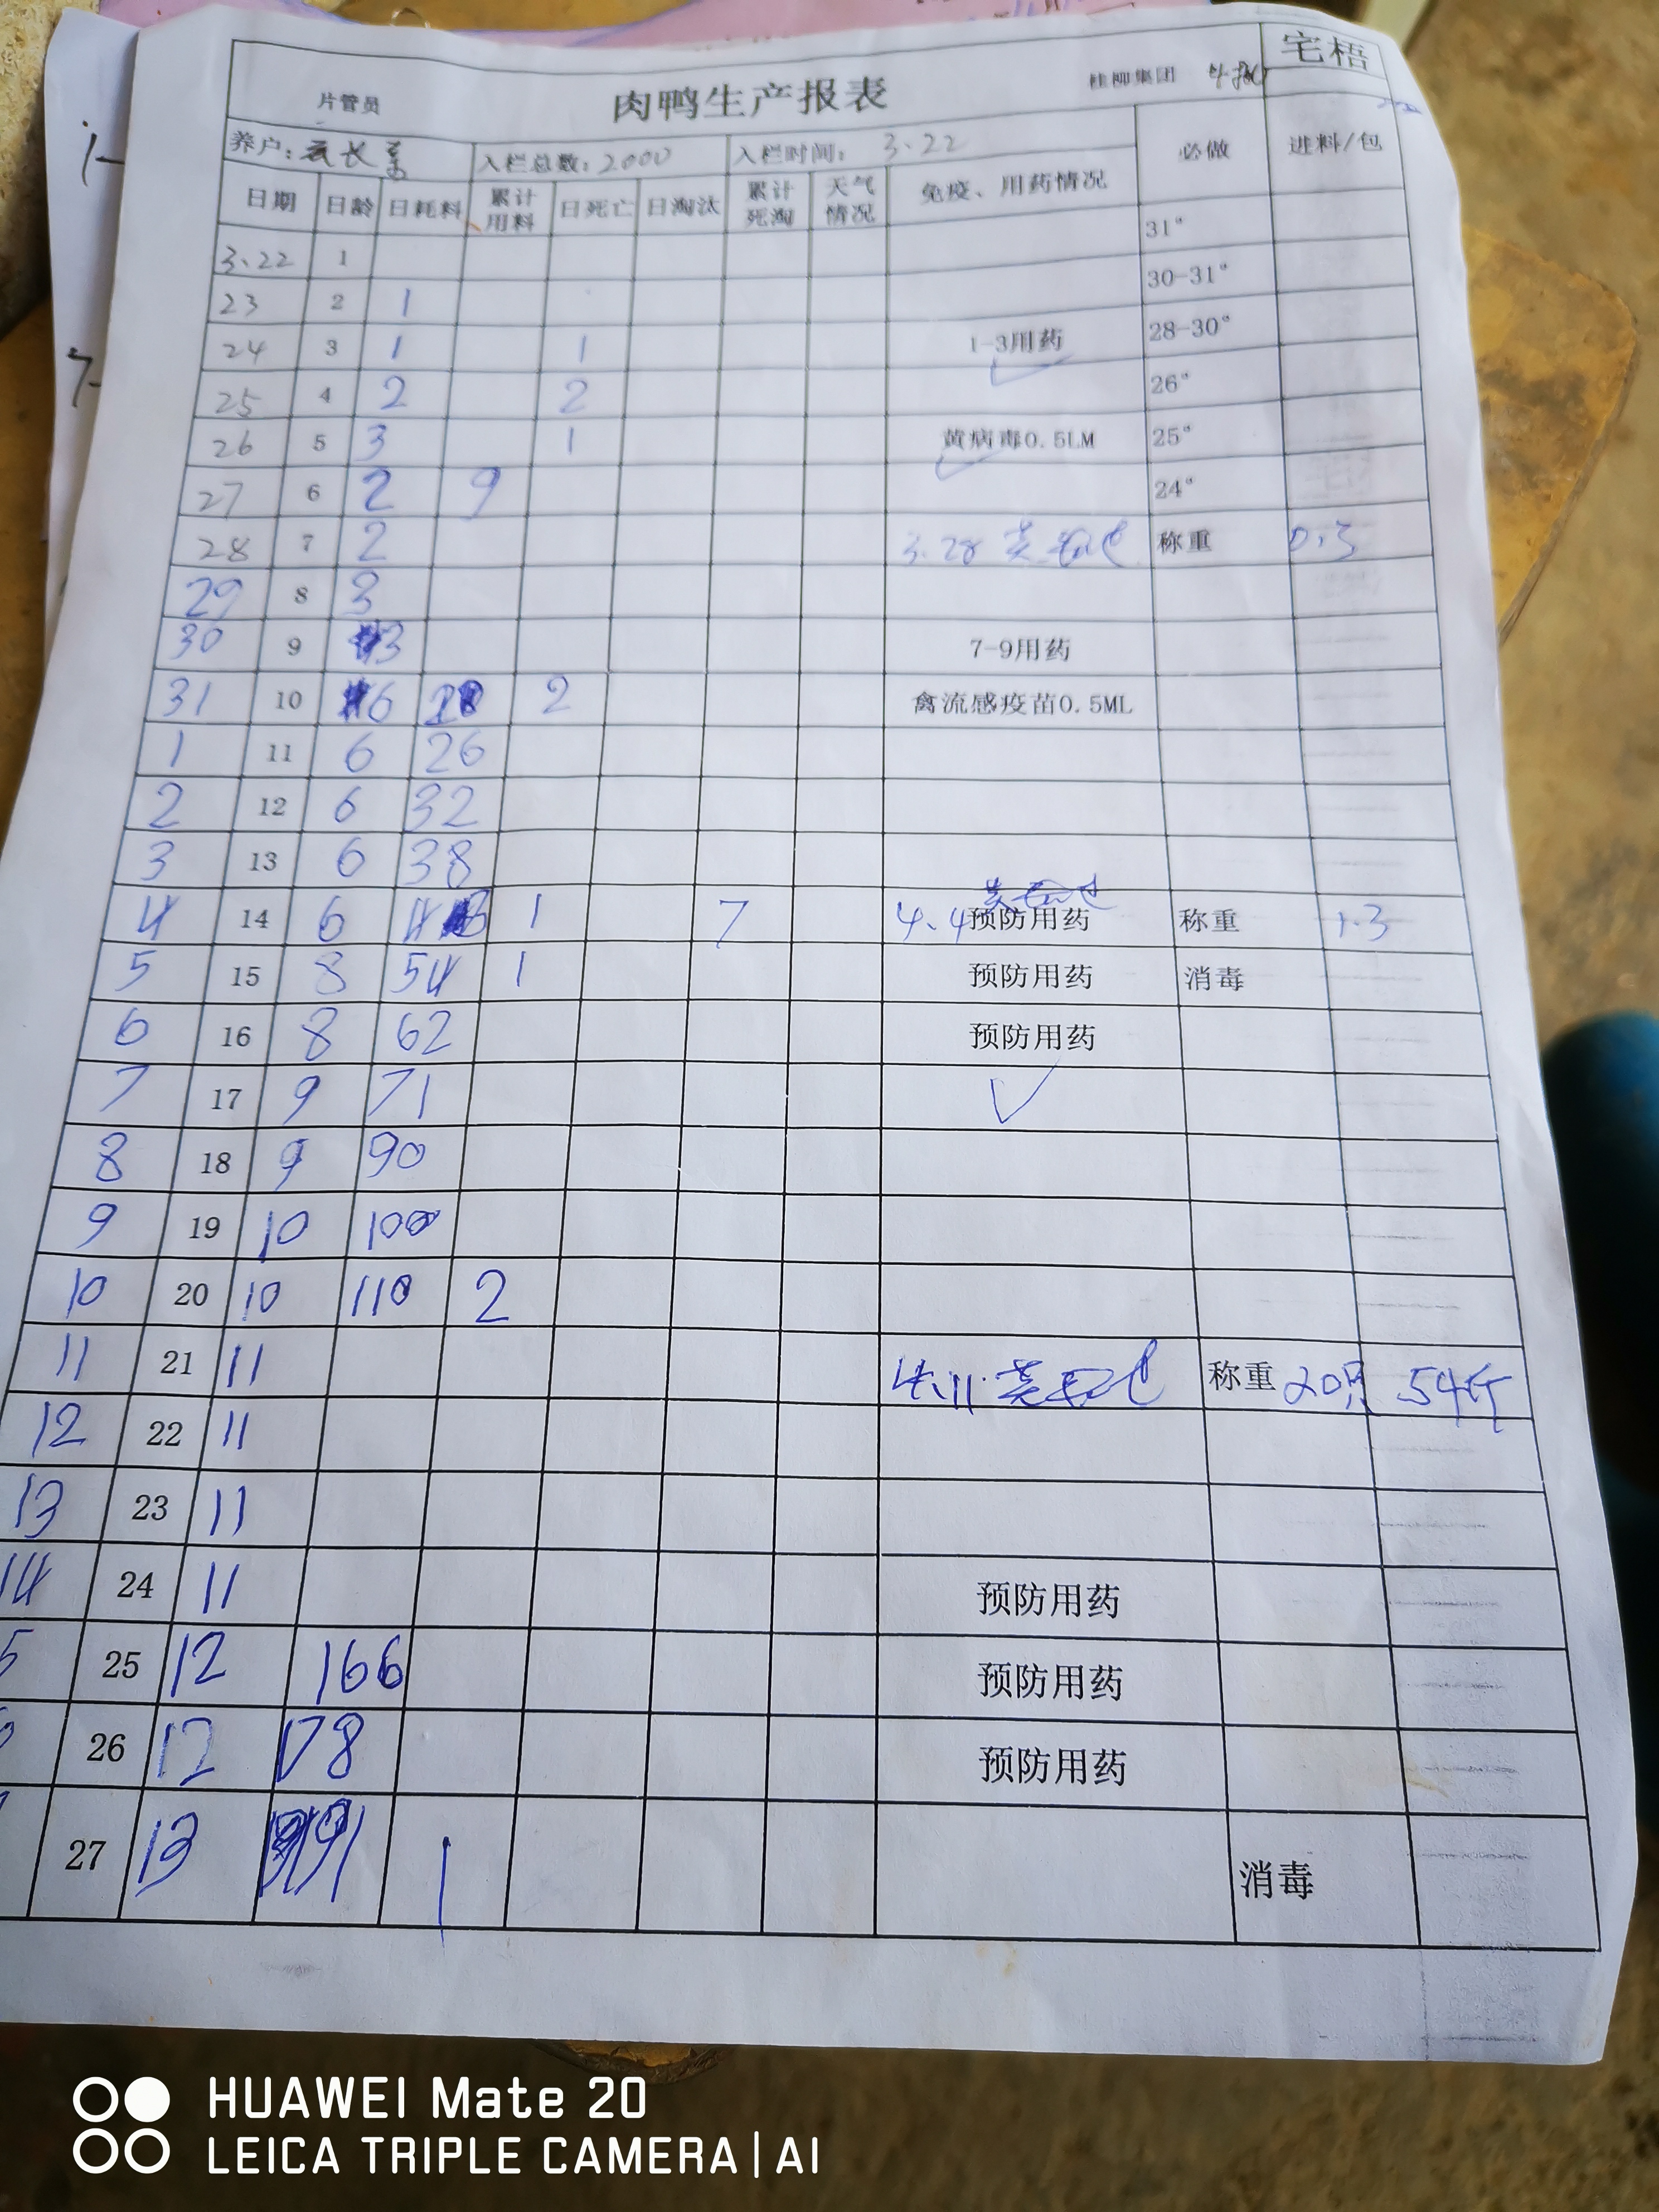 宅梧
片管员 肉鸭生产报表 桂柳集团
养户: 长 入栏总数: 2000 入栏时间: 3.22 必做 进料/包
日期 日龄 日耗料 累计用料 日死亡 日淘汰 累计死淘 天气情况 免疫、用药情况
3.22 1 31°
23 2 1 30-31°
24 3 1 1 1-3用药 28-30°
25 4 2 2 26°
26 5 3 1 黄病毒0.5LM 25°
27 6 2 9 24°
28 7 2 3.28 称重 0.5
29 8 3
30 9 3 7-9用药
31 10 6 20 2 禽流感疫苗0.5ML
1 11 6 26
2 12 6 32
3 13 6 38
4 14 6 4 1 7 4.4 预防用药 称重 1.3
5 15 8 54 1 预防用药 消毒
6 16 8 62 预防用药
7 17 9 71 ✓
8 18 9 90
9 19 10 100
10 20 10 110 2
11 21 11 4.11 称重 20只 54斤
12 22 11
13 23 11
14 24 11 预防用药
5 25 12 166 预防用药
26 12 178 预防用药
27 13 191 1 消毒
HUAWEI Mate 20
LEICA TRIPLE CAMERA | AI